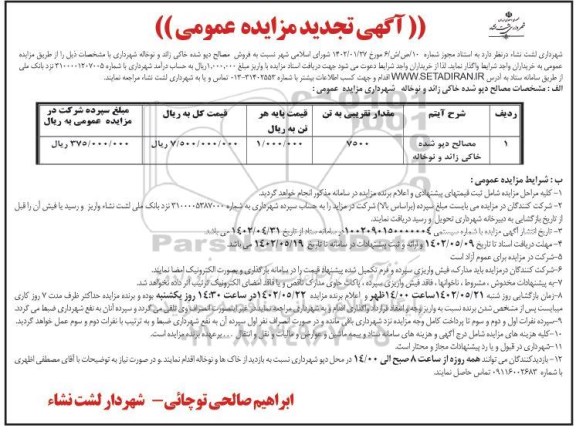 ((آگهی تجدید مزایده عمومی))
شهرداری لشت نشاء درنظر دارد به استناد مجوز شماره ۱۰/ص/ش/۶ مورخ ۱۴۰۲/۰۱/۲۷ شورای اسلامی شهر نسبت به فروش مصالح دپو شده خاکی زائد و نوخاله شهرداری با مشخصات ذیل را از طریق مزایده
عمومی به خریداران واجد شرایط واگذار نماید. لذا از خریداران واجد شرایط دعوت می شود جهت دریافت اسناد مزایده با واریز مبلغ ۱,۰۰۰,۰۰۰ ریال به حساب درآمد شهرداری با شماره ۳۱۰۰۰۰۱۲۰۷۰۰۵ نزد بانک ملی
از طریق سامانه ستاد به آدرس WWW.SETADIRAN.IR اقدام و جهت کسب اطلاعات بیشتر با شماره ۳۱۴۰۲۵۵۳-۰۱۳ تماس و یا به شهرداری لشت نشاء مراجعه نمایند.
الف : مشخصات مصالح دپو شده خاکی زائد و نوخاله شهرداری مزایده عمومی :
ردیف شرح آیتم مقدار تقریبی به تن قیمت پایه هر تن به ریال قیمت کل به ریال مبلغ سپرده شرکت در مزایده عمومی به ریال
۱ مصالح دپو شده خاکی زائد و نوخاله ۷۵۰۰ ۱/۰۰۰/۰۰۰ ۷/۵۰۰/۰۰۰/۰۰۰ ریال ۳۷۵/۰۰۰/۰۰۰ ریال
ب : شرایط مزایده عمومی :
۱- کلیه مراحل مزایده شامل ثبت قیمتهای پیشنهادی و اعلام برنده مزایده در سامانه مذکور انجام خواهد گردید.
۲- شرکت کنندگان در مزایده می بایست مبلغ سپرده (براساس بالا) شرکت در مزاید را به حساب سپرده شهرداری به شماره ۳۱۰۰۰۰۵۳۸۷۰۰۰ نزد بانک ملی لشت نشاء واریز و رسید یا فیش آن را قبل
از تاریخ بازگشایی به دبیرخانه شهرداری تحویل و رسید دریافت نمایند.
۳- تاریخ انتشار آگهی مزایده با شماره سیستمی ۱۰۰۲۰۹۰۱۵۰۰۰۰۰۰۴ در سامانه ستاد از تاریخ ۱۴۰۲/۰۴/۳۱ می باشد.
۴- مهلت دریافت اسناد تا تاریخ ۱۴۰۲/۰۵/۰۹ و ارائه و ثبت پیشنهادات در سامانه تا تاریخ ۱۴۰۲/۰۵/۱۹ می باشد.
۵- شرکت در مزایده برای عموم آزاد است
۶-شرکت کنندگان در مزایده باید مدارک، فیش واریزی سپرده و فرم تکمیل شده پیشنهاد قیمت را در سامانه بارگذاری و بصورت الکترونیک امضا نمایند.
۷-به پیشنهادات مخدوش ، مشروط ، ناخوانا ، فاقد فیش واریزی سپرده ، پاکات حاوی مدارک ناقص و یا فاقد امضای الکترونیک ترتیب اثر داده نخواهد شد.
۸-زمان بازگشایی روز شنبه ۱۴۰۲/۰۵/۲۱ ساعت ۱۴/۰۰ظهر و اعلام برنده مزایده ۱۴۰۲/۰۵/۲۲ در ساعت ۱۴/۳۰ روز یکشنبه بوده و برنده مزایده حداکثر ظرف مدت ۷ روز کاری
میبایست پس از مشخص شدن برنده نسبت به واریز وجه و انعقاد قرارداد واگذاری اقدام و به شهرداری مراجعه نماید.در غیر اینصورت انصراف وی تلقی می گردد و سپرده آنان به نفع شهرداری ضبط می گردد.
۹-سپرده نفرات اول و دوم و سوم تا پرداخت کامل وجه مزایده نزد شهرداری باقی مانده و در صورت انصراف نفر اول سپرده آن به نفع شهرداری ضبط و به ترتیب با نفرات دوم و سوم عمل خواهد گردید.
۱۰-کلیه هزینه های مزایده شامل درج آگهی و هزینه های سامانه ستاد و بیمه،مأمین و عوارض و مالیات و نقل و انتقال ... برعهده برنده مزایده است.
۱۱-شهرداری در قبول و یا رد پیشنهادات مجاز و محتار است.
۱۲-بازدیدکنندگان می توانند همه روزه از ساعت ۸ صبح الی ۱۴/۰۰ در محل دپو شهرداری نسبت به بازدید از خاک ها و نوخاله اقدام نمایند .و در صورت نیاز به توضیحات با آقای مصطفی اظهری
۰۹۱۱۶۰۰۲۶۸۳ شماره تماس حاصل نمایند.
ابراهیم صالحی توچائی- شهردار لشت نشاء